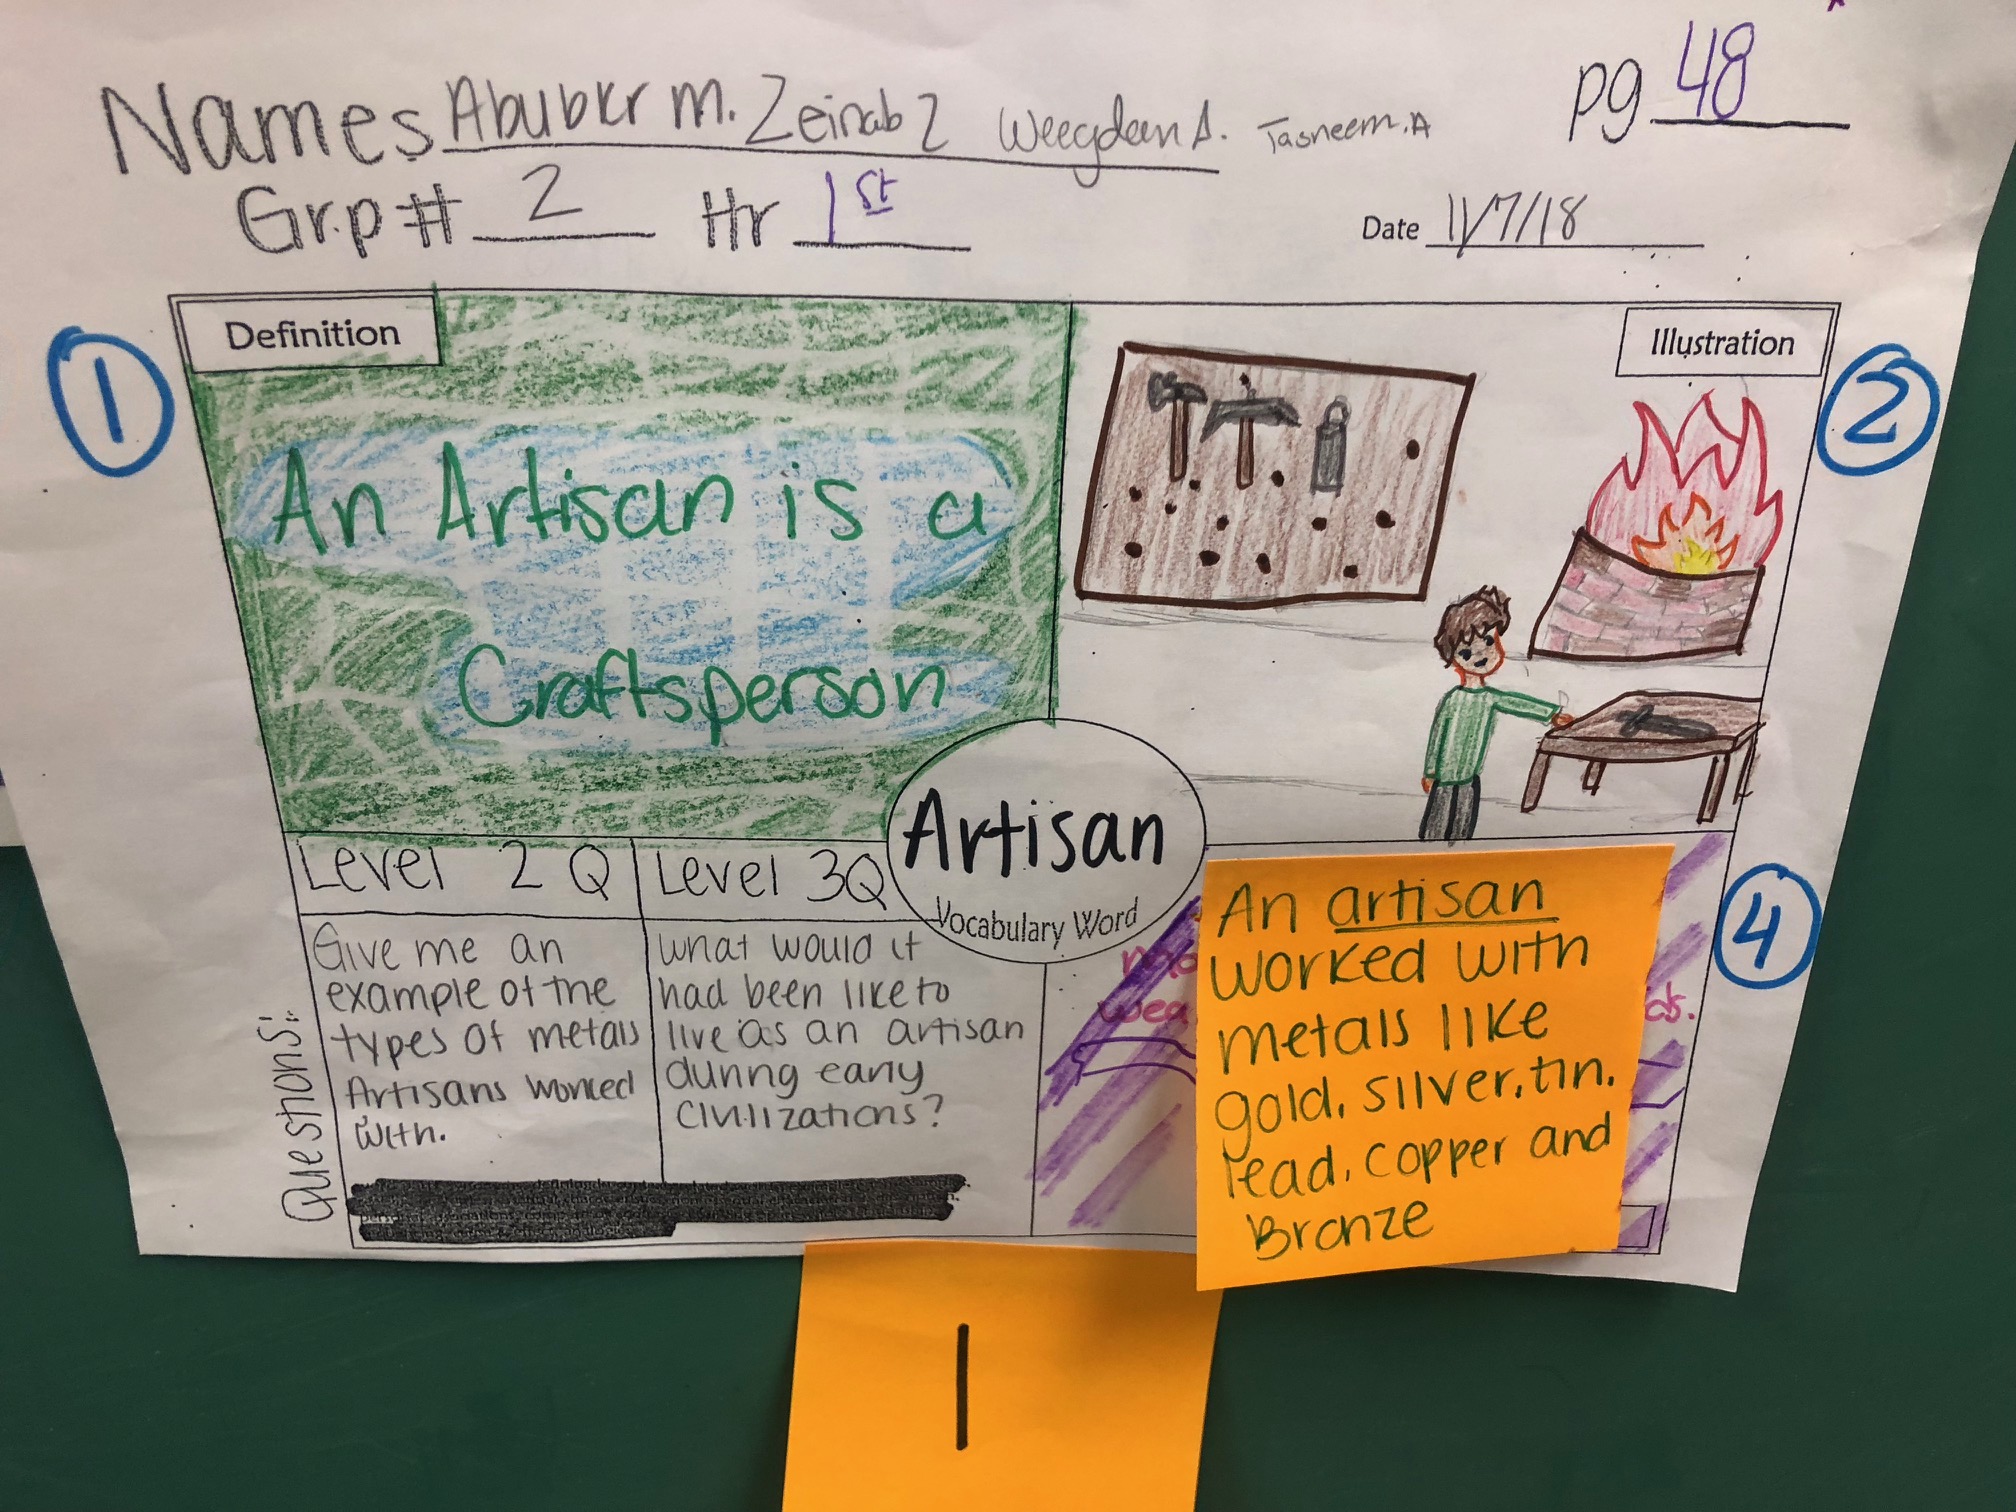 pg 48
Names Abubkr M. Zeinab Z Weegdean A. Tasneem.A
Grp # 2 Hr 1st
Date 11/7/18
1
Definition
An Artisan is a
Craftsperson
Illustration
2
Artisan
Vocabulary Word
Questions:
Level 2 Q
Give me an
example of the
types of metals
Artisans worked
with.
Level 3Q
What would it
had been like to
live as an artisan
during early
civilizations?
4
An artisan
worked with
metals like
gold, silver, tin,
lead, copper and
Bronze
1